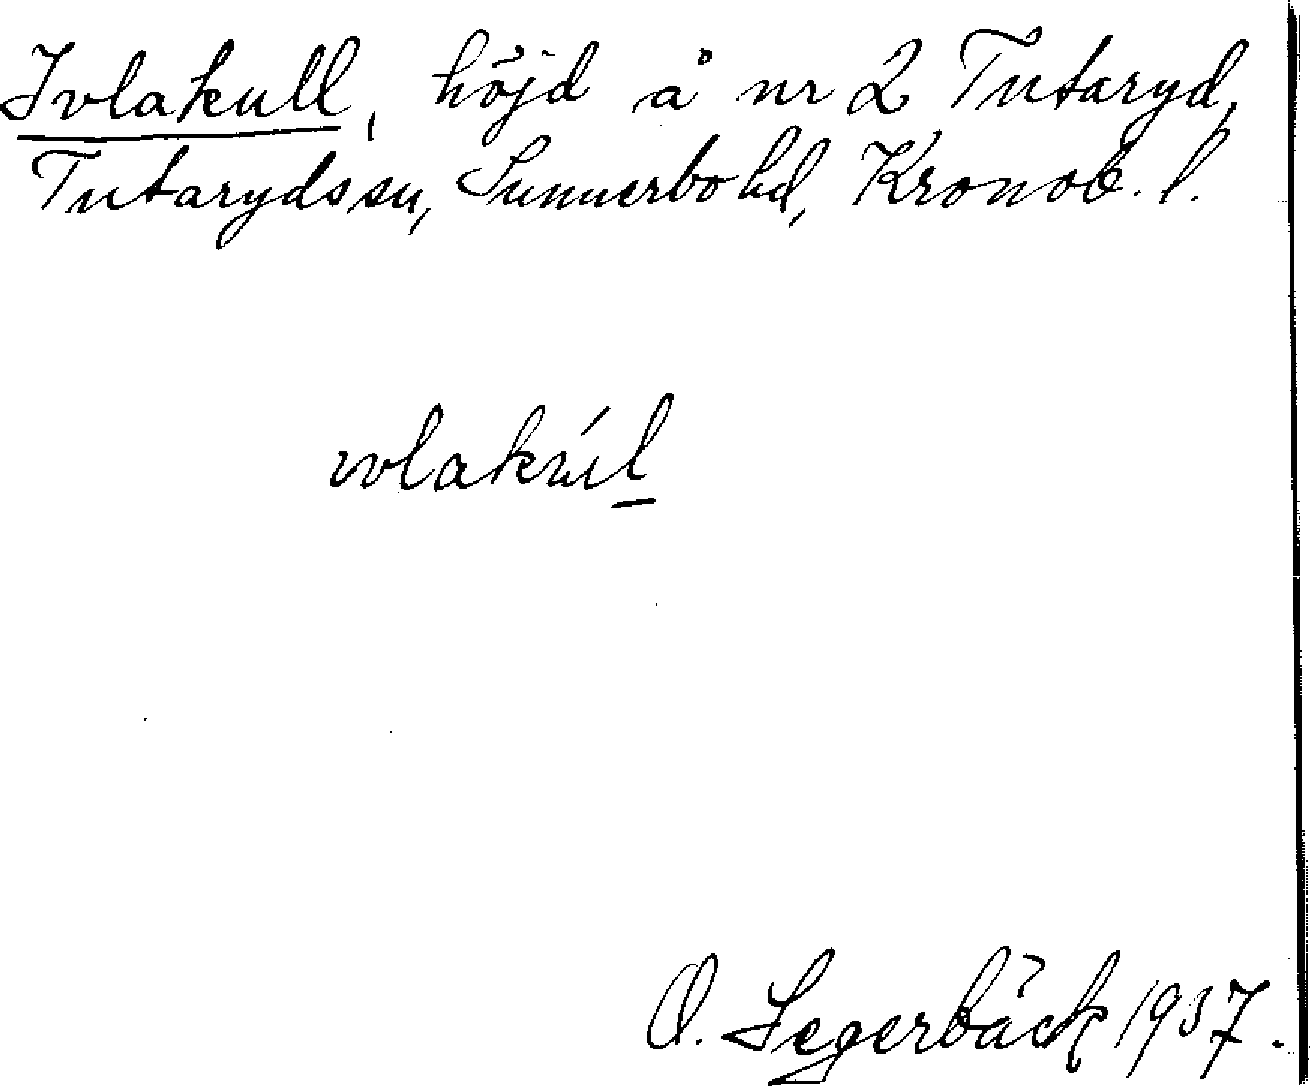 Ivlakull, höjd å nr 2 Tutaryd,
Tutaryds sn, Sunnerbo hd, Kronob. l.
ıvlakúl
O. Segerbäck 1937.